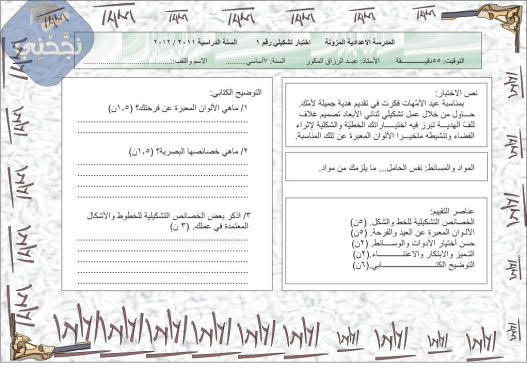 نجحني
المدرسة الاعدادية المزونة    اختبار تشكيلي رقم ١    السنة الدراسية ٢٠١١ / ٢٠١٢
التوقيت: ٥٥ دقيـــــقة    الأستاذ: عبد الرزاق المكور    السنة: ٧ أساسي...........    الاسم واللقب:....................
نص الاختبار:
بمناسبة عيد الأمهات فكرت في تقديم هدية جميلة لأمك.
حـاول من خلال عمل تشكيلي ثنائي الأبعاد تصميم غلاف
للف الهديـــة تبرز فيه اختيـــاراتك الخطية والشكلية لإثراء
الفضاء وتنشيطه متخيـرا الألوان المعبرة عن تلك المناسبة.
المواد والمسائط: نفس الحامل... ما يلزمك من مواد.
عناصر التقييم:
الخصائص التشكيلية للخط والشكل. (٥ن)
الألـوان المعبرة عن العيد والفرحة. (٥ن)
حسن أختيار الأدوات والوســائط. (٢ن)
التميـز والابتكار والاعتنــــاء. (٢ن)
التوضيح الكتـــــــــابي. (٦ن)
التوضيح الكتابي:
١/ ماهي الألوان المعبرة عن فرحتك؟ (١,٥ن)
٢/ ماهي خصائصها البصرية؟ (١,٥ن)
٣/ اذكر بعض الخصائص التشكيلية للخطوط والأشكال
المعتمدة في عملك. (٣ ن)